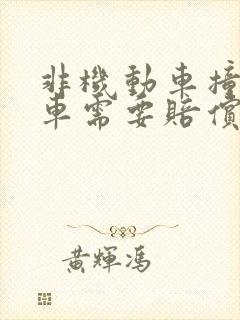 非機動車撞
車需要賠償
黃輝馮